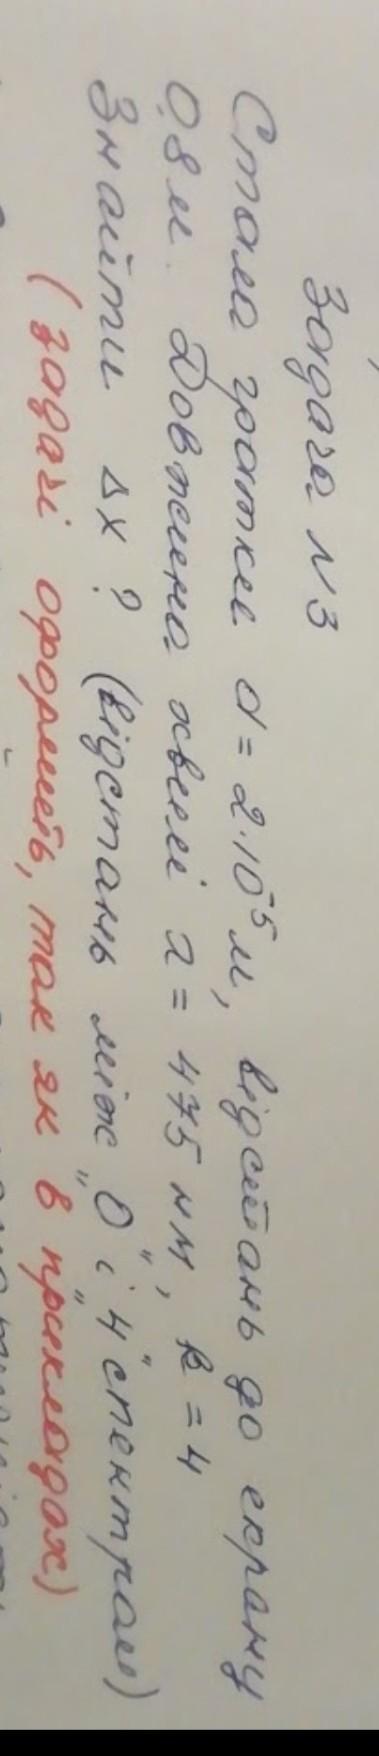 Задача N3
Стала гратки d = 2·10⁻⁵ м, відстань до екрану
0,8 м. Довжина хвилі λ = 475 нм, k = 4
Знайти Δx ? (відстань між "0" і "4" спектрам)
(задачі оформить, так як в прикладах)